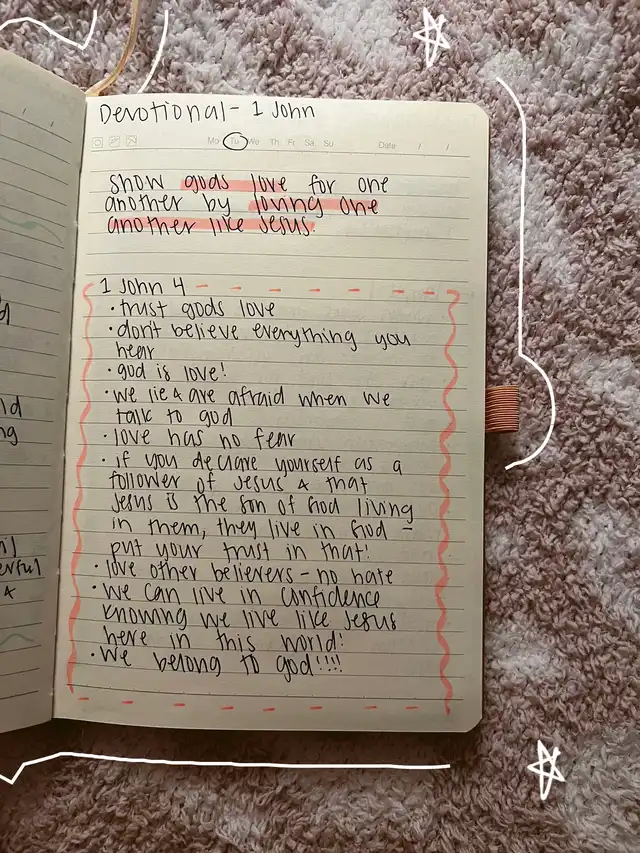 Devotional - 1 John
Mo Tu We Th Fr Sa Su Date / /
show gods love for one
another by loving one
another like Jesus.
1 John 4
• trust gods love
• don't believe everything you
hear
• god is love!
• we lie & are afraid when we
talk to god
• love has no fear
• if you declare yourself as a
follower of Jesus & that
Jesus is the son of God living
in them, they live in God -
put your trust in that!
• love other believers - no hate
• we can live in confidence
knowing we live like Jesus
here in this world!
• we belong to god!!!!